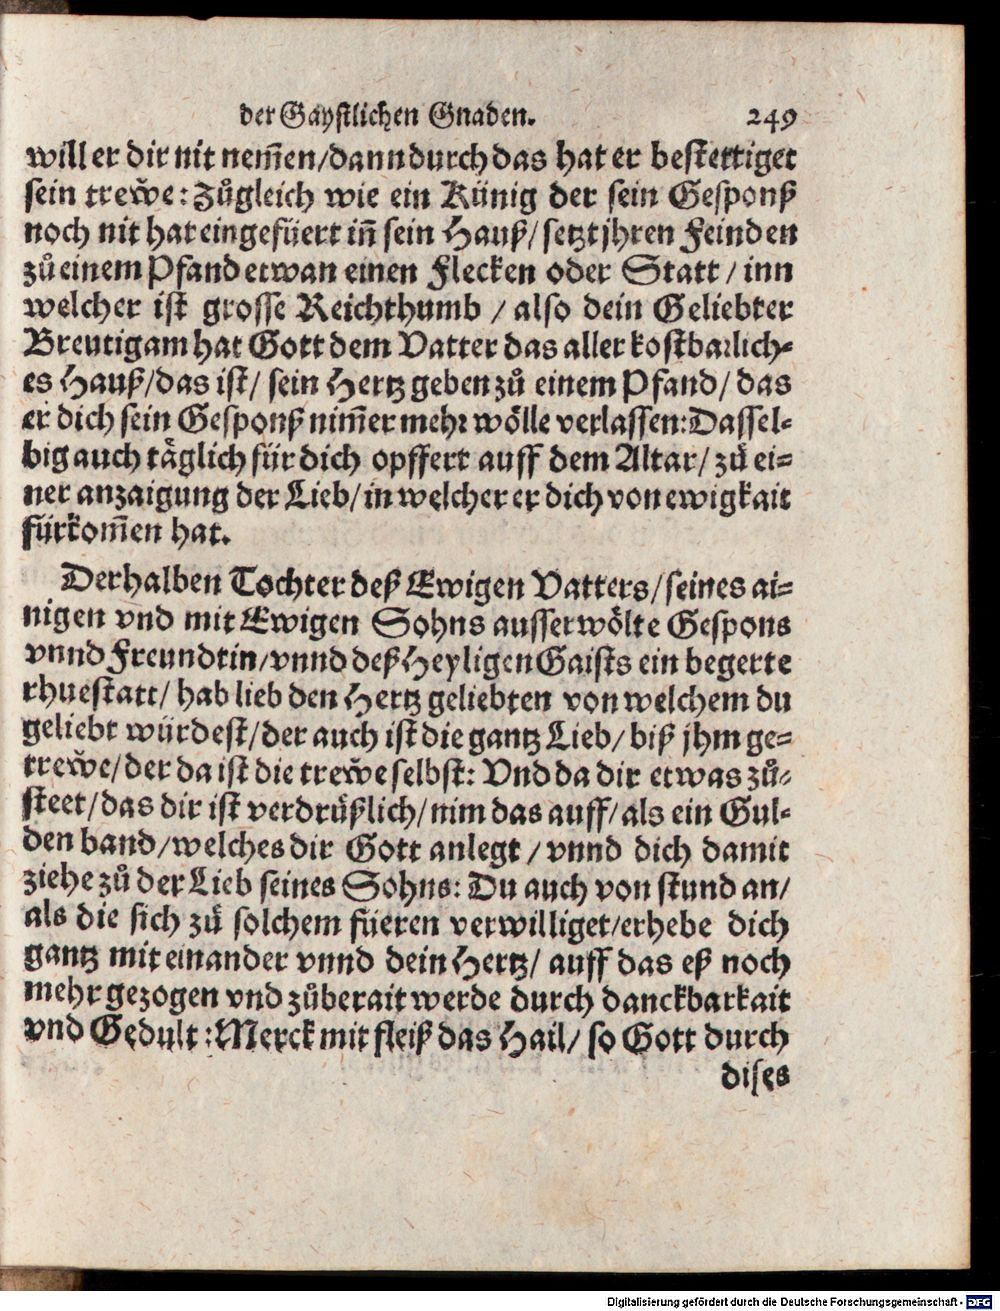 der Gaystlichen Gnaden. 249
will er dir nit nem̃en/dann durch das hat er bestettiget
sein trew̆e: Zůgleich wie ein Künig der sein Gesponß
noch nit hat eingefüert iñ sein Hauß/setzt jhren Feinden
zů einem Pfand etwan einen Flecken oder Statt/inn
welcher ist grosse Reichthumb / also dein Geliebter
Breutigam hat Gott dem Vatter das aller kostbarlich-
es Hauß/das ist/ sein Hertz geben zů einem Pfand/ das
er dich sein Gesponß nim̃er mehr wölle verlassen: Dassel-
big auch täglich für dich opffert auff dem Altar/ zů ei-
ner anzaigung der Lieb/in welcher er dich von ewigkait
fürkom̃en hat.
Derhalben Tochter deß Ewigen Vatters/seines ai-
nigen vnd mit Ewigen Sohns ausserwölte Gespons
vnnd Freundtin/vnnd deß Heyligen Gaists ein begerte
rhuestatt/ hab lieb den Hertz geliebten von welchem du
geliebt würdest/der auch ist die gantz Lieb/ biß jhm ge-
trew̆e/der da ist die trew̆e selbst: Vnd da dir etwas zů-
steet/das dir ist verdrüßlich/nim das auff/als ein Gul-
den band/welches dir Gott anlegt / vnnd dich damit
ziehe zů der Lieb seines Sohns: Du auch von stund an/
als die sich zů solchem füeren verwilliget/erhebe dich
gantz mit einander vnnd dein Hertz/ auff das eß noch
mehr gezogen vnd zůberait werde durch danckbarkait
vnd Gedult: Merck mit fleiß das Hail/ so Gott durch
dises
Digitalisierung gefördert durch die Deutsche Forschungsgemeinschaft - DFG